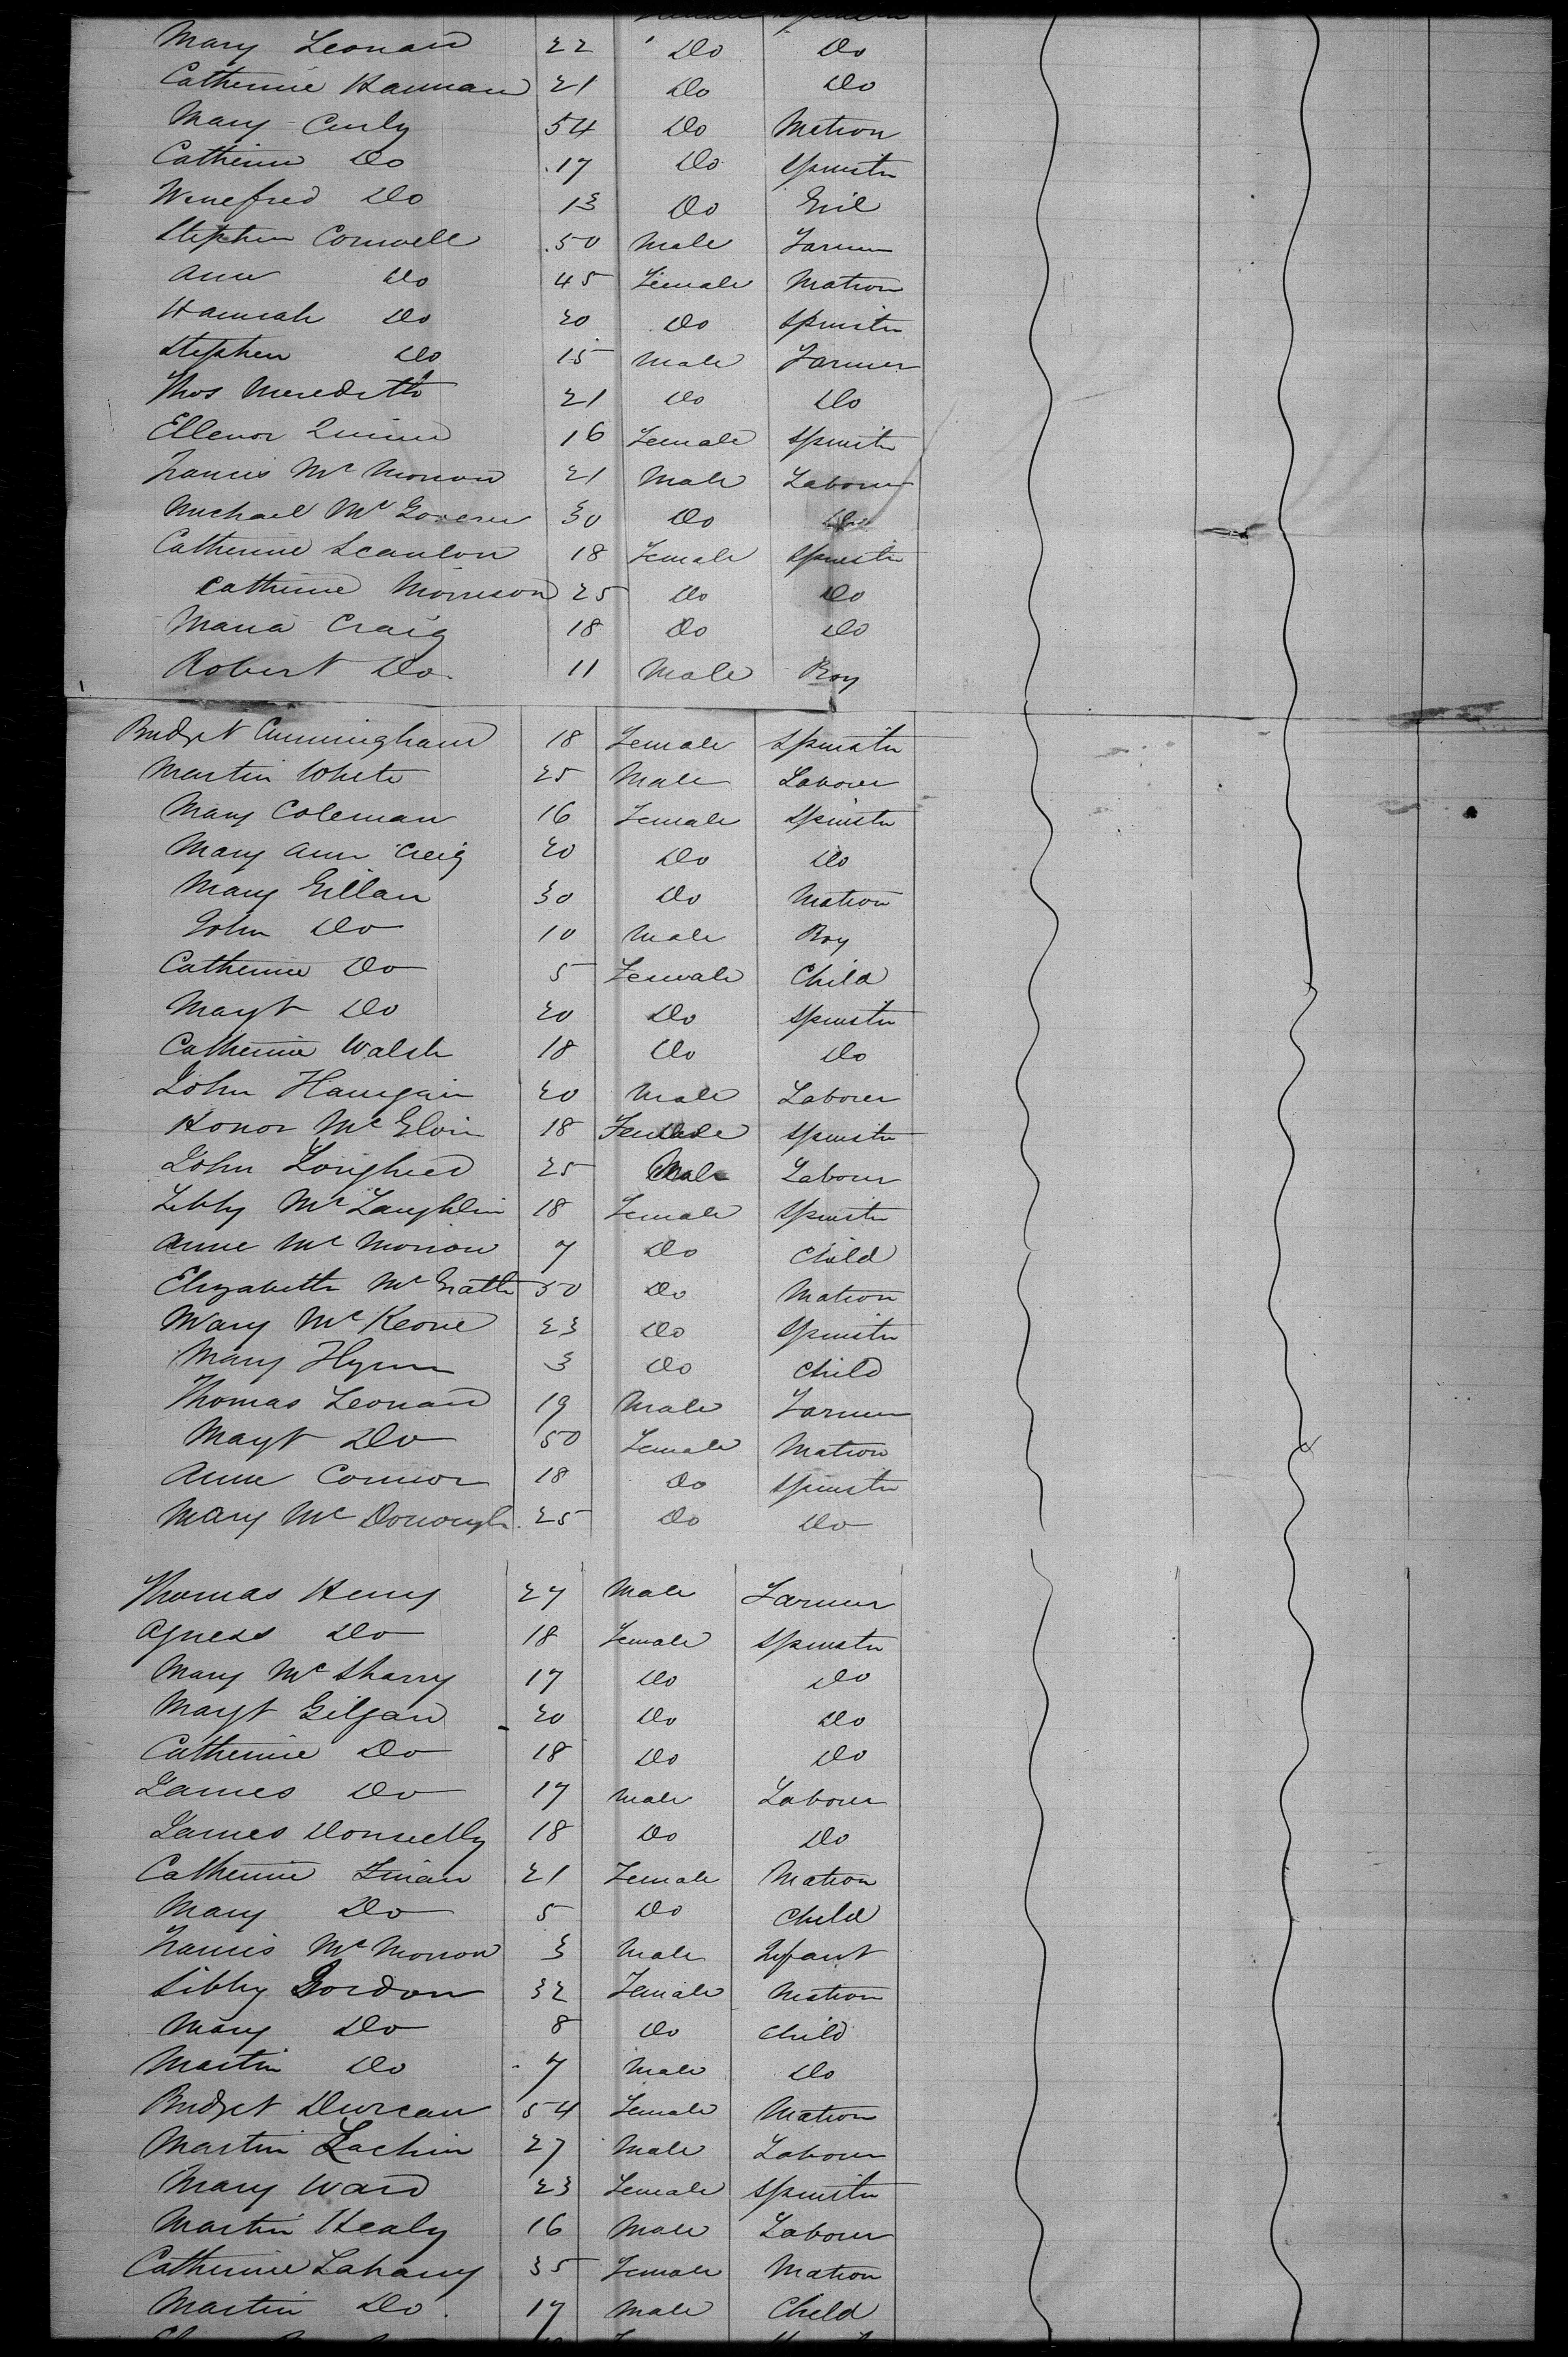 Mary Leonard 22 Do Do
Catherine Hannan 21 Do Do
Mary Curly 54 Do Matron
Catherine Do 17 Do Spinster
Winefred Do 13 Do Girl
Stephen Conwell 50 Male Farmer
Ann Do 45 Female Matron
Hannah Do 20 Do Spinster
Stephen Do 15 Male Farmer
Thos Meredith 21 Do Do
Ellenor Quinn 16 Female Spinster
Francis Mc Morrow 21 Male Laborer
Michael Mc Govern 30 Do Do
Catherine Scanlon 18 Female Spinster
Catherine Morrison 25 Do Do
Maria Craig 18 Do Do
Robert Do 11 Male Boy
Bridget Cunningham 18 Female Spinster
Martin White 25 Male Laborer
Mary Coleman 16 Female Spinster
Mary Ann Creig 20 Do Do
Mary Gillan 30 Do Matron
John Do 10 Male Boy
Catherine Do 5 Female Child
Magt Do 20 Do Spinster
Catherine Walsh 18 Do Do
John Hanigain 20 Male Laborer
Honor Mc Elvin 18 Female Spinster
John 25 Male Laborer
Libby Mc Laughlin 18 Female Spinster
Anne Mc Morrow 7 Do Child
Elizabeth Mc Grath 50 Do Matron
Mary Mc Keone 23 Do Spinster
Mary Flynn 3 Do Child
Thomas Leonard 19 Male Farmer
Magt Do 50 Female Matron
Anne Connor 18 Do Spinster
Mary Mc Donough 25 Do Do
Thomas Henry 27 Male Farmer
Agness Do 18 Female Spinster
Mary Mc Sharry 17 Do Do
Magt Gilgan 20 Do Do
Catherine Do 18 Do Do
James Do 17 Male Laborer
James Donnelly 18 Do Do
Catherine Finan 21 Female Matron
Mary Do 5 Do Child
Francis Mc Morrow 3 Male Infant
Sibby Gordon 32 Female Matron
Mary Do 8 Do Child
Martin Do 7 Male Do
Bridget Durcan 54 Female Matron
Martin Lachin 27 Male Laborer
Mary Ward 23 Female Spinster
Martin Healy 16 Male Laborer
Catherine Lahany 35 Female Matron
Martin Do 17 Male Child